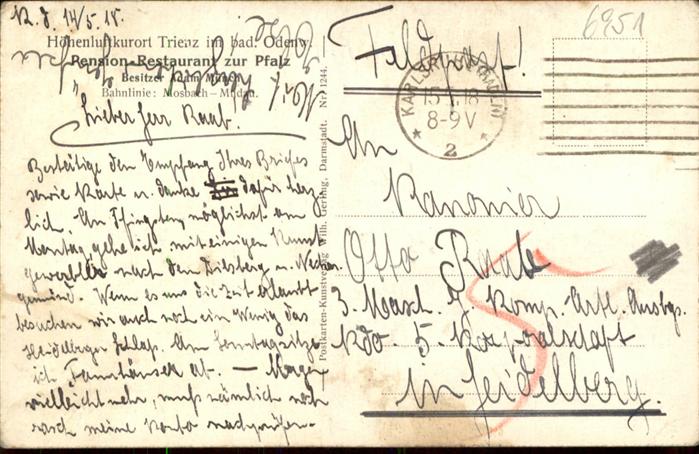 K. d. 14/5.18.
Höhenluftkurort Trienz im bad. Odenw.
Pension-Restaurant zur Pfalz
Besitzer
Bahnlinie: Mosbach-Mudau.
Lieber Herr Raab.
Bestätige den Empfang Ihres Briefes
sowie Karte u. danke dafür herz
lich. An Pfingsten, möglichst am
Montag gehe ich mit einigen Kunst
gewerbler nach dem Dilsberg u. Neckar
gemünd. Wenn es uns die Zeit erlaubt
besuchen wir auch noch ein wenig das
Heidelberger Schloß. Am Sonntag sitze
ich
vielleicht mehr, muß nämlich noch
rasch meine nachprüfen.
Postkarten-Kunstverlag Wilh. Gerling, Darmstadt. Nr. 1244.
6951
Feldpost!
KARLSRUHE (BADEN)
15.5.18
8-9V
* 2 *
An
Kanonier
Otto Raab
3. Masch. G. Komp. Artl. Ausbgs.
Kdo. 5. Korporalschaft
in Heidelberg.
5